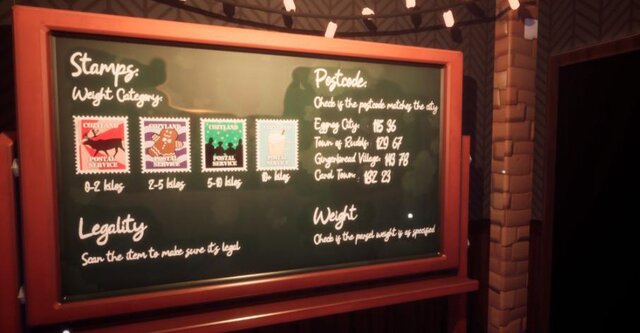 Stamps:
Weight Category:
COZYLAND
POSTAL
SERVICE
COZYLAND
POSTAL
SERVICE
COZYLAND
POSTAL
SERVICE
COZYLAND
POSTAL
SERVICE
0-2 kilos
2-5 kilos
5-10 kilos
10+ kilos
Legality
Scan the item to make sure it's legal
Postcode:
Check if the postcode matches the city
Eggroy City: 115 96
Town of Rudds: 129 67
Gingerbread Village: 113 78
Card Town: 132 23
Weight
Check if the parsel weight is as specified